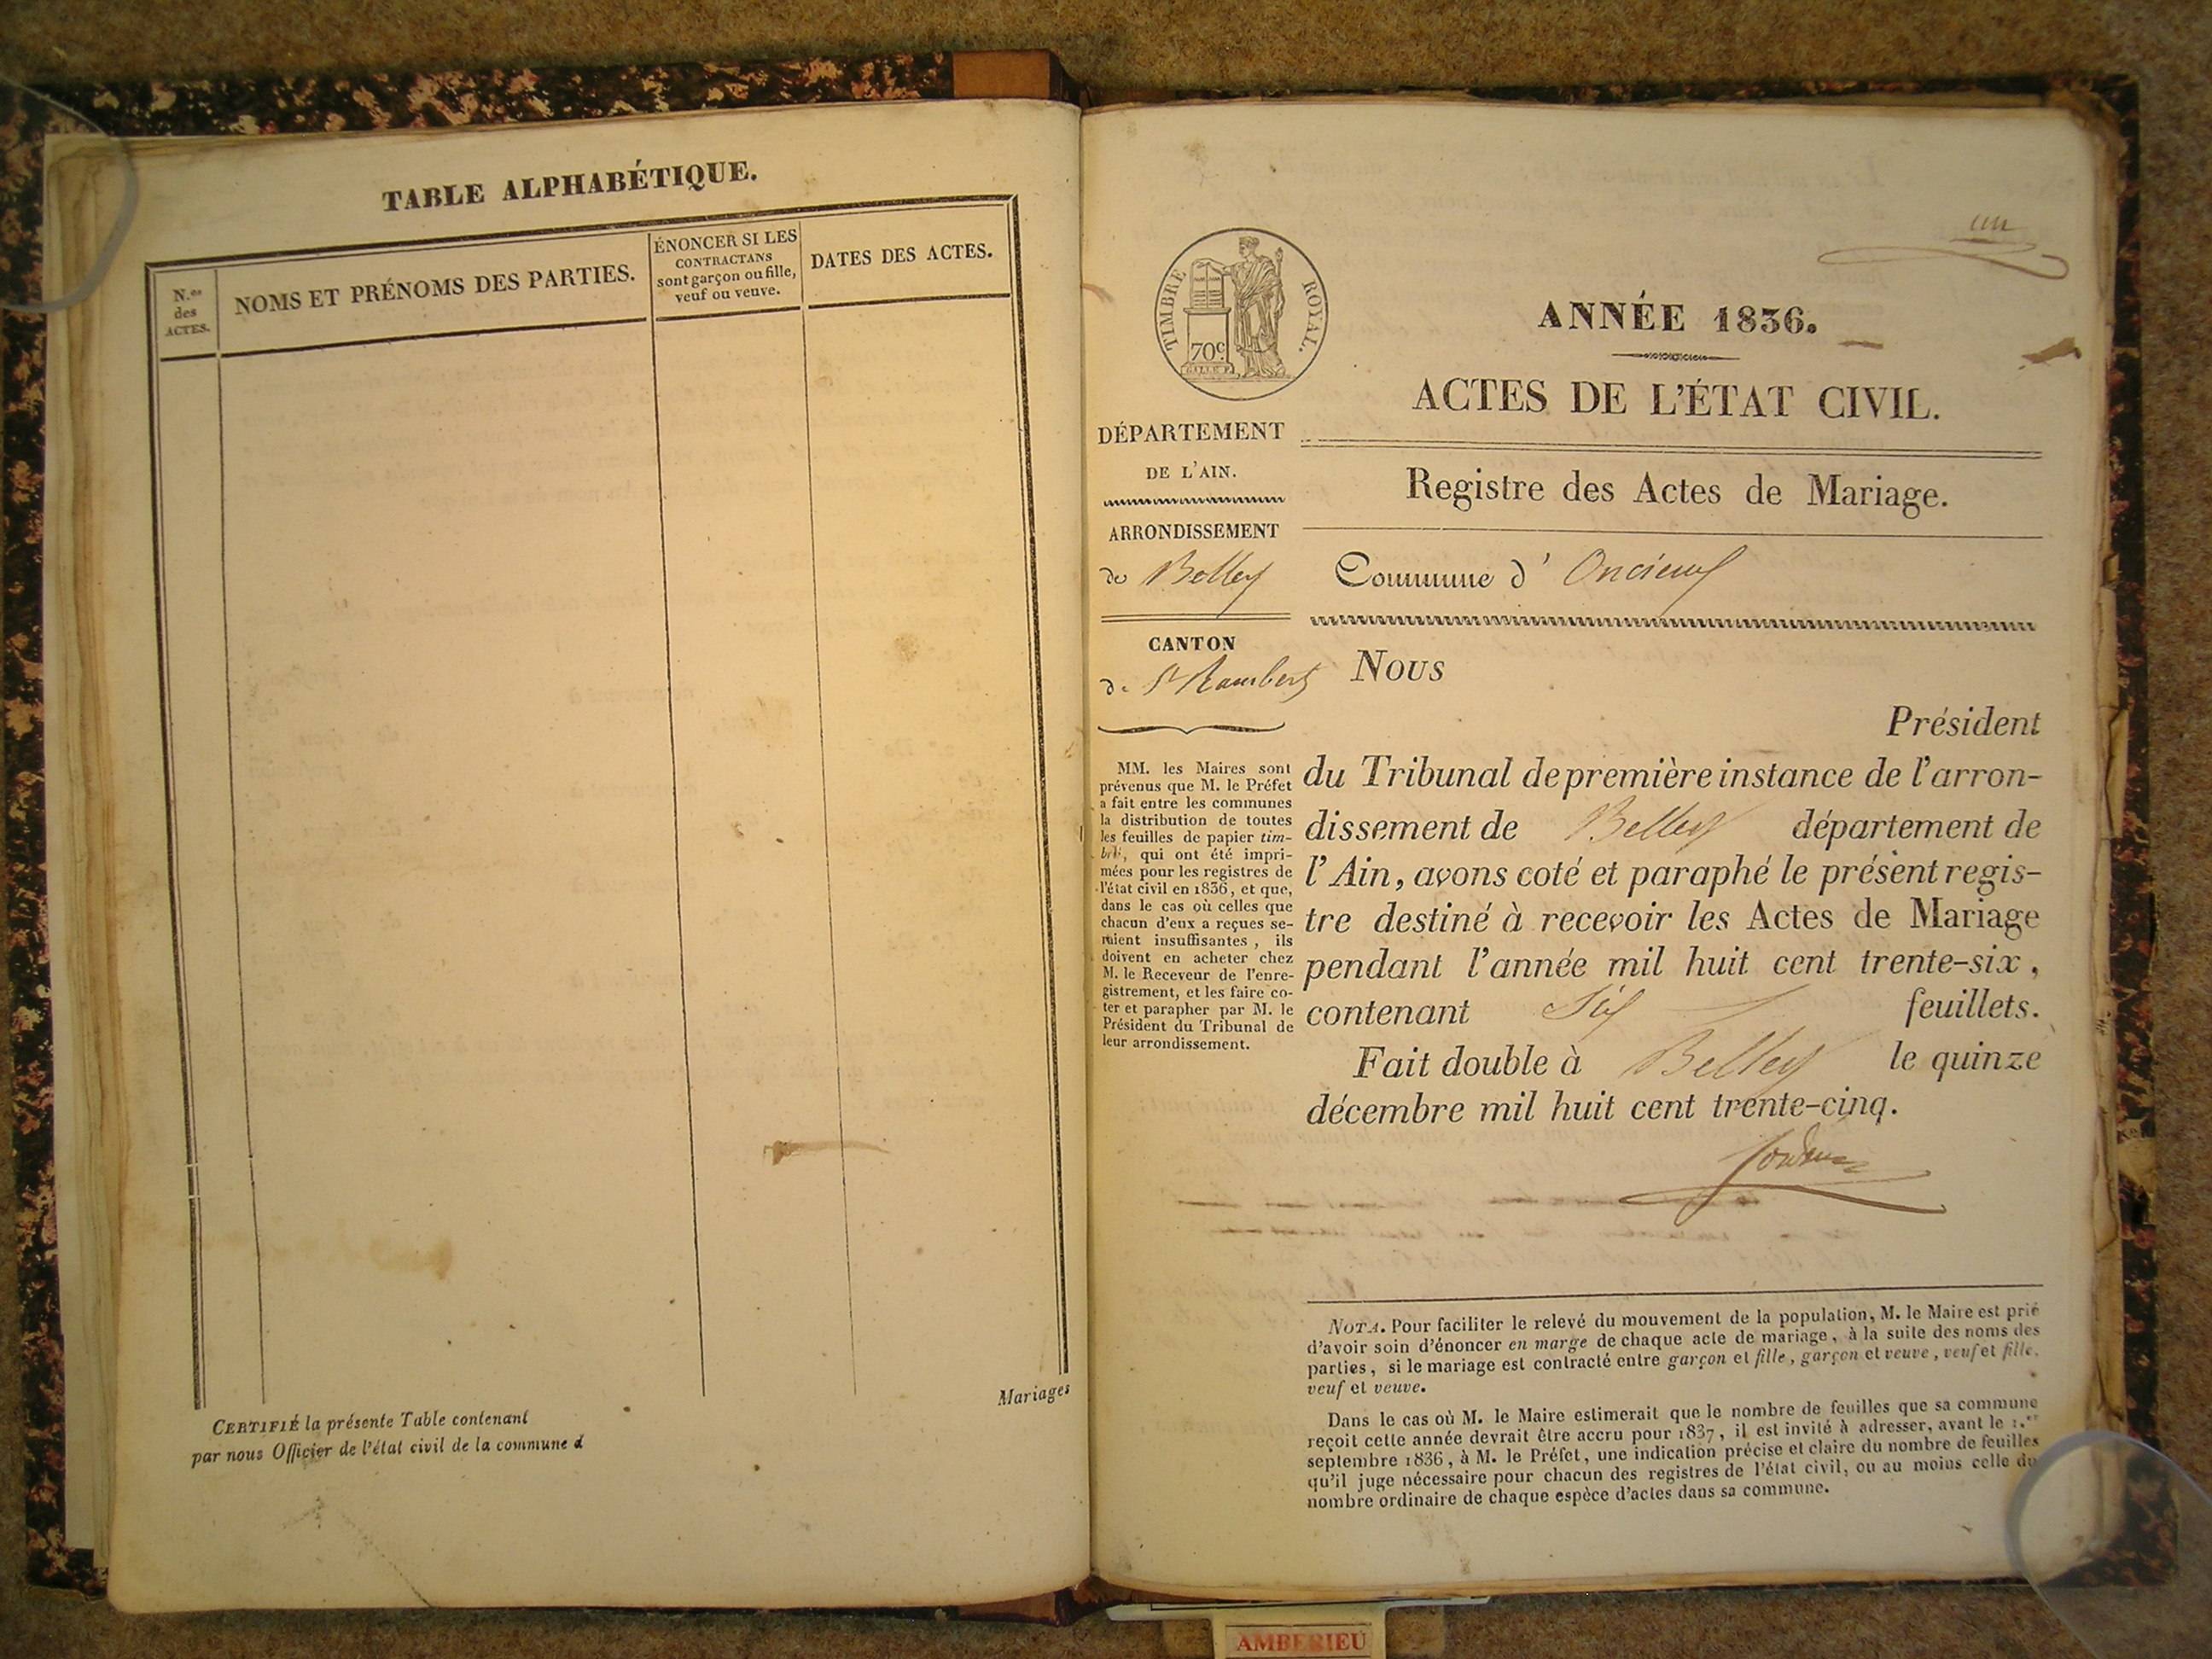 TABLE ALPHABÉTIQUE.
N.os
des
ACTES.
NOMS ET PRÉNOMS DES PARTIES.
ÉNONCER SI LES
CONTRACTANS
sont garçon ou fille,
veuf ou veuve.
DATES DES ACTES.
Mariages
CERTIFIÉ la présente Table contenant
par nous Officier de l'état civil de la commune d
un
TIMBRE ROYAL.
70c.
ANNÉE 1836.
ACTES DE L'ÉTAT CIVIL.
DÉPARTEMENT
DE L'AIN.
Registre des Actes de Mariage.
ARRONDISSEMENT
de Belley
Commune d' Oncieux
CANTON
de St Rambert
Nous
Président
du Tribunal de première instance de l'arron-
dissement de Belley département de
l'Ain, avons coté et paraphé le présent regis-
tre destiné à recevoir les Actes de Mariage
pendant l'année mil huit cent trente-six,
contenant Six feuillets.
Fait double à Belley le quinze
décembre mil huit cent trente-cinq.
MM. les Maires sont
prévenus que M. le Préfet
a fait entre les communes
la distribution de toutes
les feuilles de papier tim-
bré, qui ont été impri-
mées pour les registres de
l'état civil en 1836, et que,
dans le cas où celles que
chacun d'eux a reçues se-
raient insuffisantes, ils
doivent en acheter chez
M. le Receveur de l'enre-
gistrement, et les faire co-
ter et parapher par M. le
Président du Tribunal de
leur arrondissement.
NOTA. Pour faciliter le relevé du mouvement de la population, M. le Maire est prié
d'avoir soin d'énoncer en marge de chaque acte de mariage, à la suite des noms des
parties, si le mariage est contracté entre garçon et fille, garçon et veuve, veuf et fille,
veuf et veuve.
Dans le cas où M. le Maire estimerait que le nombre de feuilles que sa commune
reçoit cette année devrait être accru pour 1837, il est invité à adresser, avant le 1.er
septembre 1836, à M. le Préfet, une indication précise et claire du nombre de feuilles
qu'il juge nécessaire pour chacun des registres de l'état civil, ou au moins celle du
nombre ordinaire de chaque espèce d'actes dans sa commune.
AMBERIEU